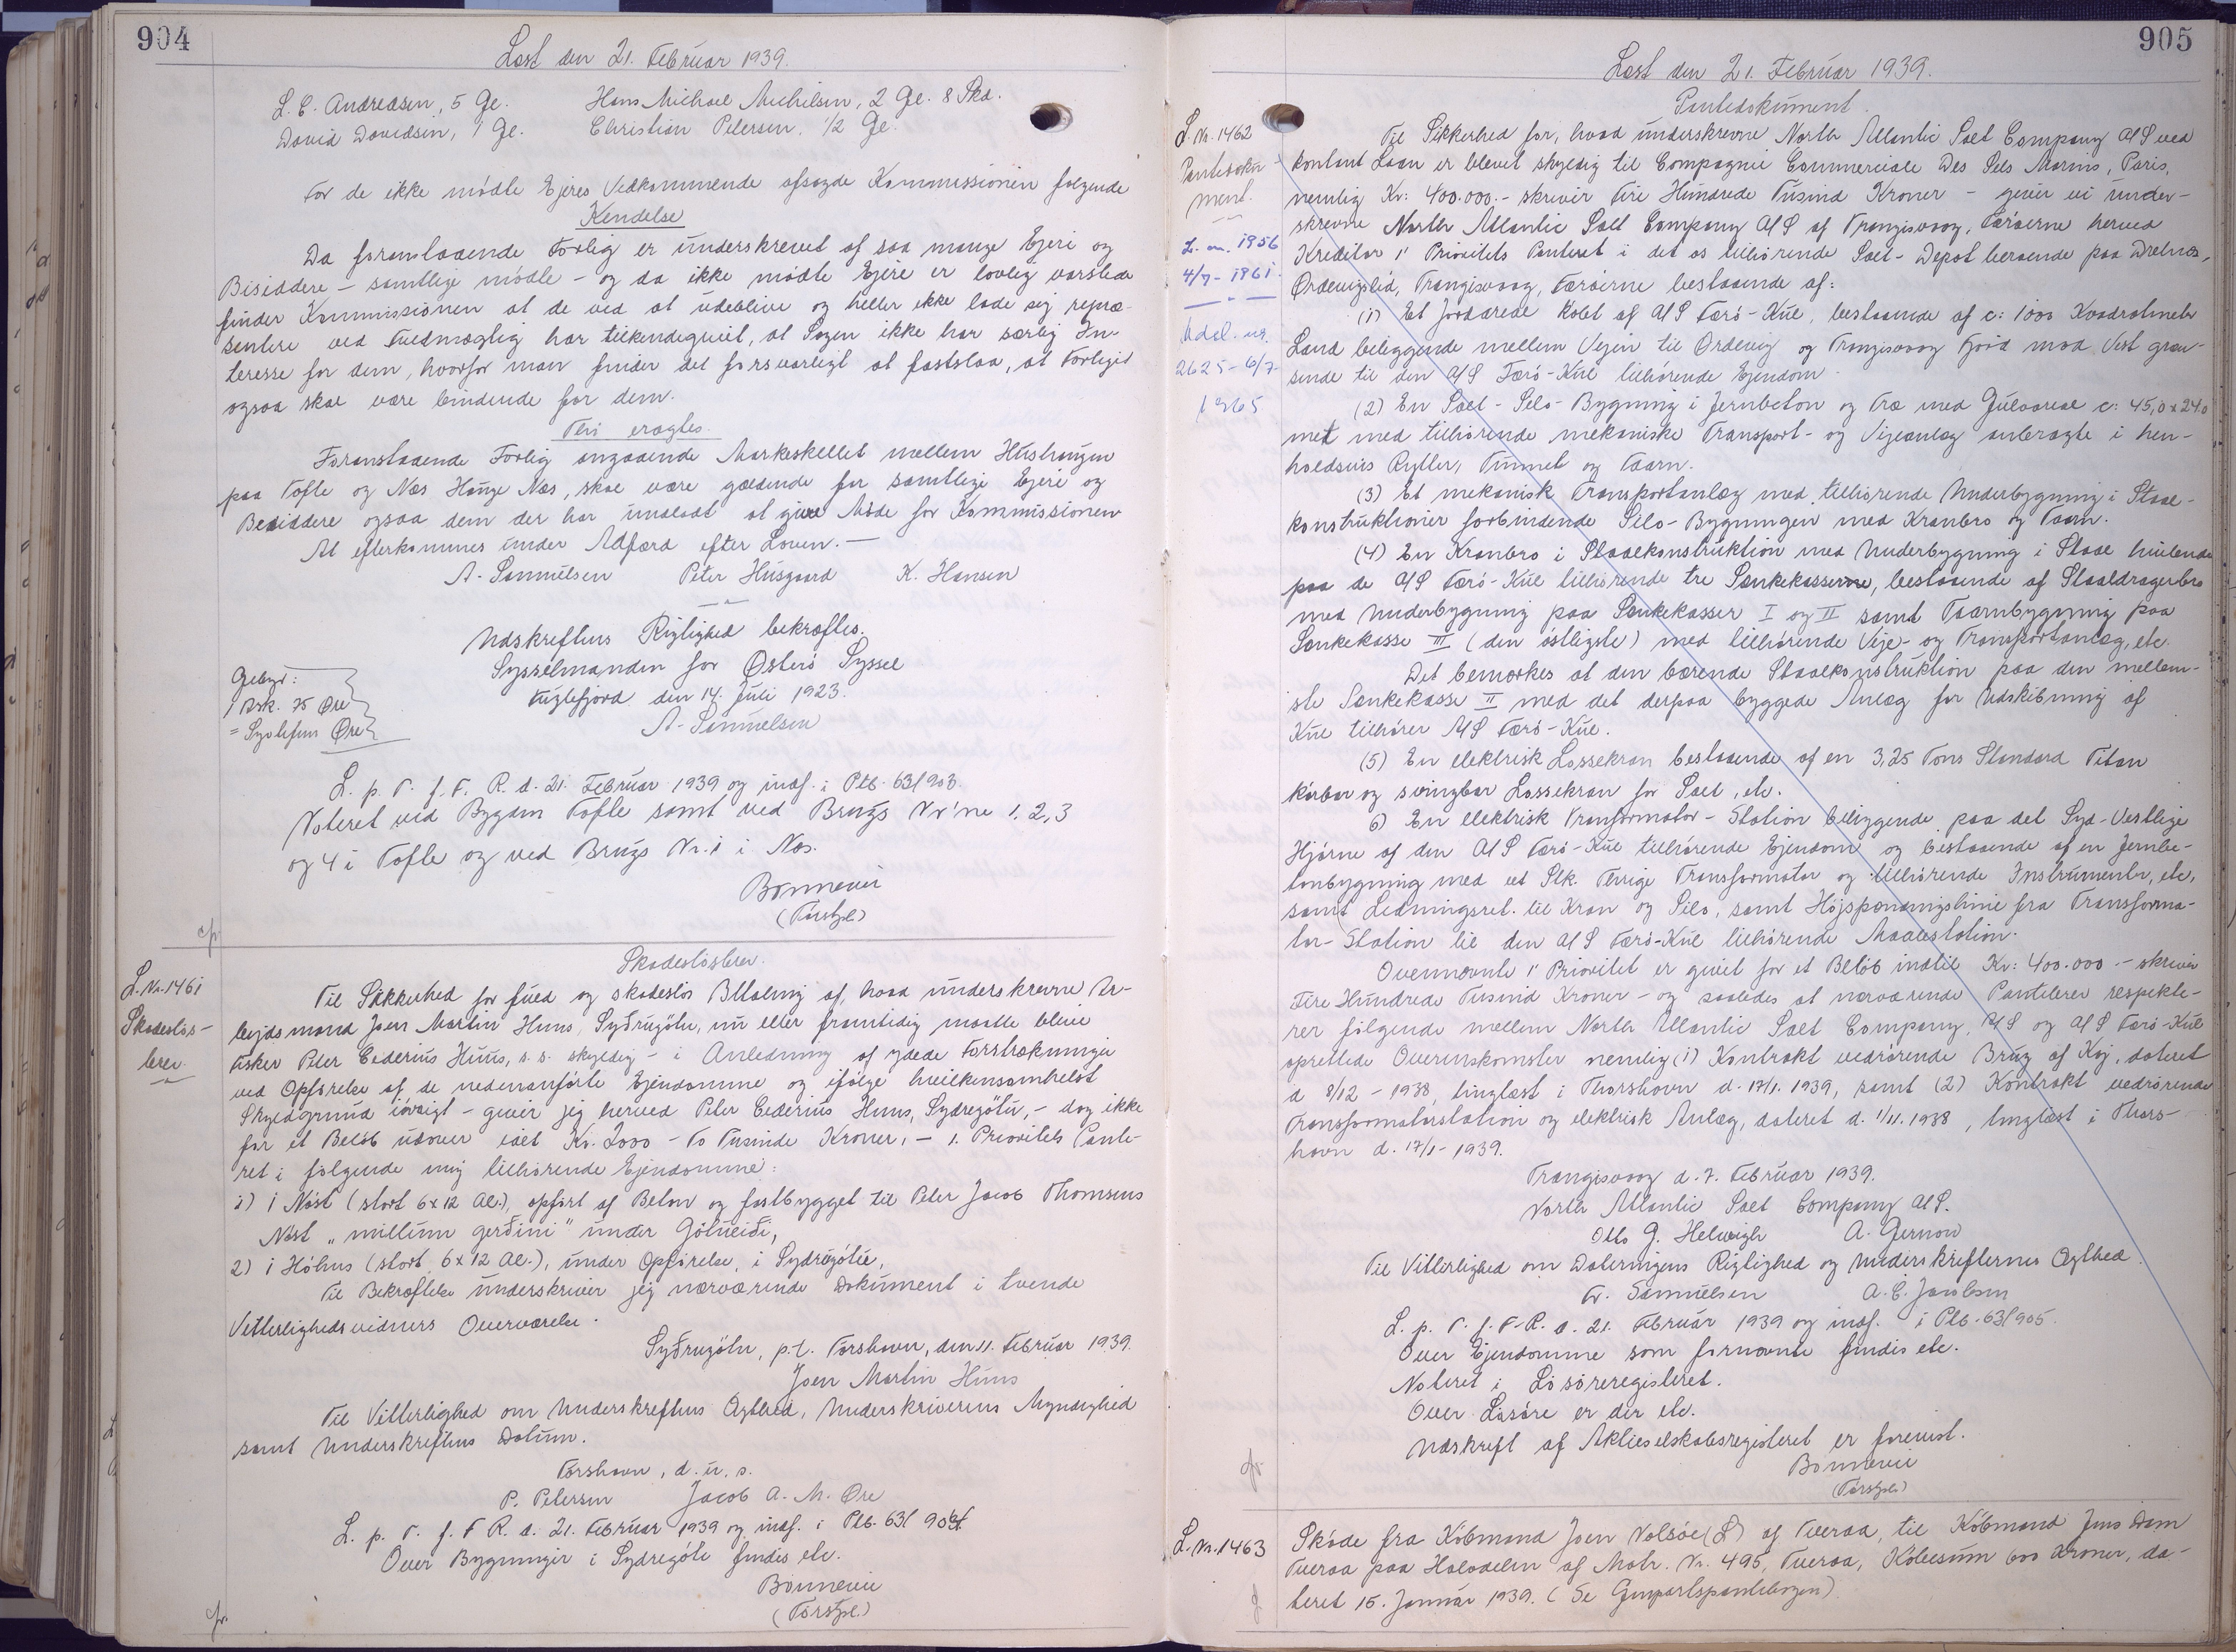 904
Læst den 21. Februar 1939.
L. C. Andreasen, 5 Gl. Hans Michael Michelsen, 2 Gl. 8 Skd.
David Davidsen, 1 Gl. Christian Petersen, 1/2 Gl.
For de ikke mødte Ejeres Vedkommende afsagde Kommissionen følgende
Kendelse
Da foranstaaende Forlig er underskrevet af saa mange Ejere og
Besiddere - samtlige mødte - og da ikke mødte Ejere er lovlig varslede
finder Kommissionen at de ved at udeblive og heller ikke lade sig repræ-
sentere ved Fuldmægtig har tilkendegivet, at Sagen ikke har særlig In-
teresse for dem, hvorfor man finder det forsvarligt at fastslaa, at Forliget
ogsaa skal være bindende for dem.
Thi eragtes
Foranstaaende Forlig angaaende Markeskellet mellem Hushaugen
paa Tofte og Næs Hauge Næs, skal være gældende for samtlige Ejere og
Besiddere ogsaa dem der har undladt at give Møde for Kommissionen
At efterkommes under Adfærd efter Loven. —
A. Samuelsen Peter Husgaard K. Hansen
Udskriftens Rigtighed bekræftes.
Sysselmanden for Østerø Syssel
Fuglefjord den 14. Juli 1923.
A. Samuelsen
Gebyr:
1 Rsk. 75 Øre
= Syvtifem Øre
L. p. T. f. F. R. d. 21. Februar 1939 og indf. i Ptb. 63/903.
Noteret ved Bygden Tofte samt ved Brugs Nr'ne 1, 2, 3
og 4 i Tofte og ved Brugs Nr. 1 i Næs.
Bonnevie
(Færstpl.)
cfr.
L. Nr. 1461
Skadesløs-
brev.
Skadesløsbrev.
Til Sikkerhed for fuld og skadesløs Betaling af, hvad underskrevne Ar-
bejdsmand Joen Martin Huus, Syðrugøtu, nu eller fremtidig maatte blive
Fisker Peter Ederius Huus, s. s. skyldig - i Anledning af ydede Forstrækninger
ved Opførelse af de nedenanførte Ejendomme og ifølge hvilkensomhelst
Skyldgrund iøvrigt - giver jeg herved Peter Ederius Huus, Sydregøtu, - dog ikke
for et Beløb udover ialt Kr. 2000 - To Tusinde Kroner, - 1. Prioritets Pante-
ret i følgende mig tilhørende Ejendomme:
1) 1 Nøst (stort 6x12 Al.), opført af Beton og fastbygget til Peter Jacob Thomsens
Nøst „millum gerðini" under Gøtueiði,
2) 1 Hóhus (stort 6x12 Al.), under Opførelse, i Sydrugøtu,
Til Bekræftelse underskriver jeg nærværende Dokument i tvende
Vitterlighedsvidners Overværelse.
Syðrugøtu, p.t. Torshavn, den 11. Februar 1939.
Joen Martin Huus
Til Vitterlighed om Underskriftens Ægthed, Underskriverens Myndighed
samt Underskriftens Datum.
Torshavn, d. u. s.
P. Petersen Jacob A. M. Øre
L. p. T. f. F. R. d. 21. Februar 1939 og indf. i Ptb. 63/904.
Over Bygninger i Sydregøte findes etc.
Bonnevie
(Færstpl.)
cfr.
905
Læst den 21. Februar 1939.
L Nr. 1462
Pantedoku-
ment.
L. nr. 1956
4/7-1961.
Udsl. nr.
2625-6/7-
1965
Pantedokument.
Til Sikkerhed for, hvad underskrevne North Atlantic Salt Company A/S ved
kontant Laan er blevet skyldig til Compagnie Commerciale Des Sels Marins, Paris,
nemlig Kr: 400.000.- skriver Fire Hundrede Tusind Kroner - giver vi under-
skrevne North Atlantic Salt Company A/S af Trangisvaag, Færøerne herved
Kreditor 1' Prioritets Panteret i det os tilhørende Salt-Depot beroende paa Drelnæs,
Ordevigslid, Trangisvaag, Færøerne bestaaende af:
(1) Et Jordarede købt af A/S Færø-Kul, bestaaende af c: 1000 Kvadratmeter
Land beliggende mellem Vejen til Ordevig og Trangisvaag Fjord mod Vest græn-
sende til den A/S Færø-Kul tilhørende Ejendom.
(2) En Salt-Silo-Bygning i Jernbeton og Træ med Gulvareal c: 45,0 x 24,0
met med tilhørende mekaniske Transport- og Vejeanlæg anbragte i hen-
holdsvis Rytter, Tunnel og Taarn.
(3) Et mekanisk Transportanlæg med tilhørende Underbygning i Staal-
konstruktioner forbindende Silo-Bygningen med Kranbro og Taarn.
(4) En Kranbro i Staalkonstruktion med Underbygning i Staal hvilende
paa de A/S Færø-Kul tilhørende tre Sænkekasserne, bestaaende af Staaldragerbro
med Underbygning paa Sænkekasser I og II samt Taarnbygning paa
Sænkekasse III (den østligste) med tilhørende Veje- og Transportanlæg, etc.
Det bemærkes at den bærende Staalkonstruktion paa den mellem-
ste Sænkekasse II med det derpaa byggede Anlæg for Udskibning af
Kul tilhører A/S Færø-Kul.
(5) En elektrisk Lossekran bestaaende af en 3,25 Tons Standard Titan
kørbar og svingbar Lossekran for Salt, etc.
6) En elektrisk Transformator-Station beliggende paa det Syd-Vestlige
Hjørne af den A/S Færø-Kul tilhørende Ejendom og bestaaende af en Jernbe-
tonbygning med et Stk. Thrige Transformator og tilhørende Instrumenter, etc,
samt Ledningsret. til Kran og Silo, samt Højspændingslinie fra Transforma-
tor-Station til den A/S Færø-Kul tilhørende Maalestation.
Ovennævnte 1' Prioritet er givet for et Beløb indtil Kr: 400.000 - skriver
Fire Hundrede Tusind Kroner - og saaledes at nærværende Pantebrev respekte-
rer følgende mellem North Atlantic Salt Company A/S og A/S Færø-Kul
oprettede Overenskomster nemlig (1) Kontrakt vedrørende Brug af Kaj, dateret
d 8/12-1938, tinglæst i Thorshavn d. 17/1. 1939, samt (2) Kontrakt vedrørende
Transformatorstation og elektrisk Anlæg, dateret d. 1/11. 1938, tinglæst i Thors-
havn d. 17/1-1939.
Trangisvaag d. 7. Februar 1939.
North Atlantic Salt Company A/S.
Otto G. Helweigh A. Gernow
Til Vitterlighed om Dateringens Rigtighed og Underskrifternes Ægthed.
Fr. Samuelsen A. C. Jacobsen
L. p. T. f. F. R. d. 21. Februar 1939 og indf. i Ptb. 63/905.
Over Ejendomme som fornævnte findes etc.
Noteret i Løsøreregisteret.
Over Løsøre er der etc.
Udskrift af Aktieselskabsregisteret er forevist.
Bonnevie
(Færstpl.)
cfr.
L. Nr. 1463
Skøde fra Købmand Joen Volsøe (L) af Tveraa, til Købmand Jens Dam
Tveraa paa Halvdelen af Matr. Nr. 495, Tveraa, Købesum 600 Kroner, da-
teret 15. Januar 1939. (Se Genpartspantebogen)